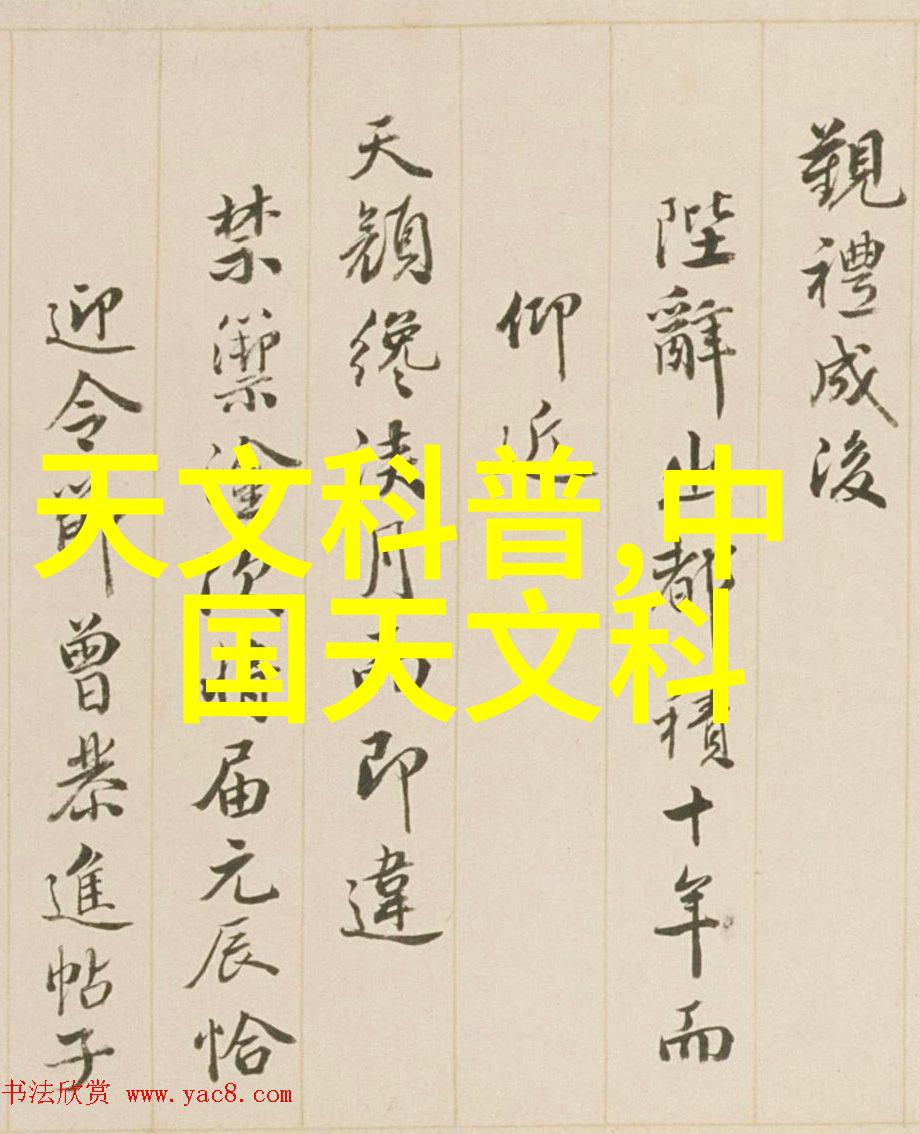 覲禮成後
陛辭出都積十年而
仰近
天顔纔浹月而即違
禁籞屆元辰恰
迎令節曾恭進帖子
天文科普,中
国天文科
书法欣赏 www.yac8.com